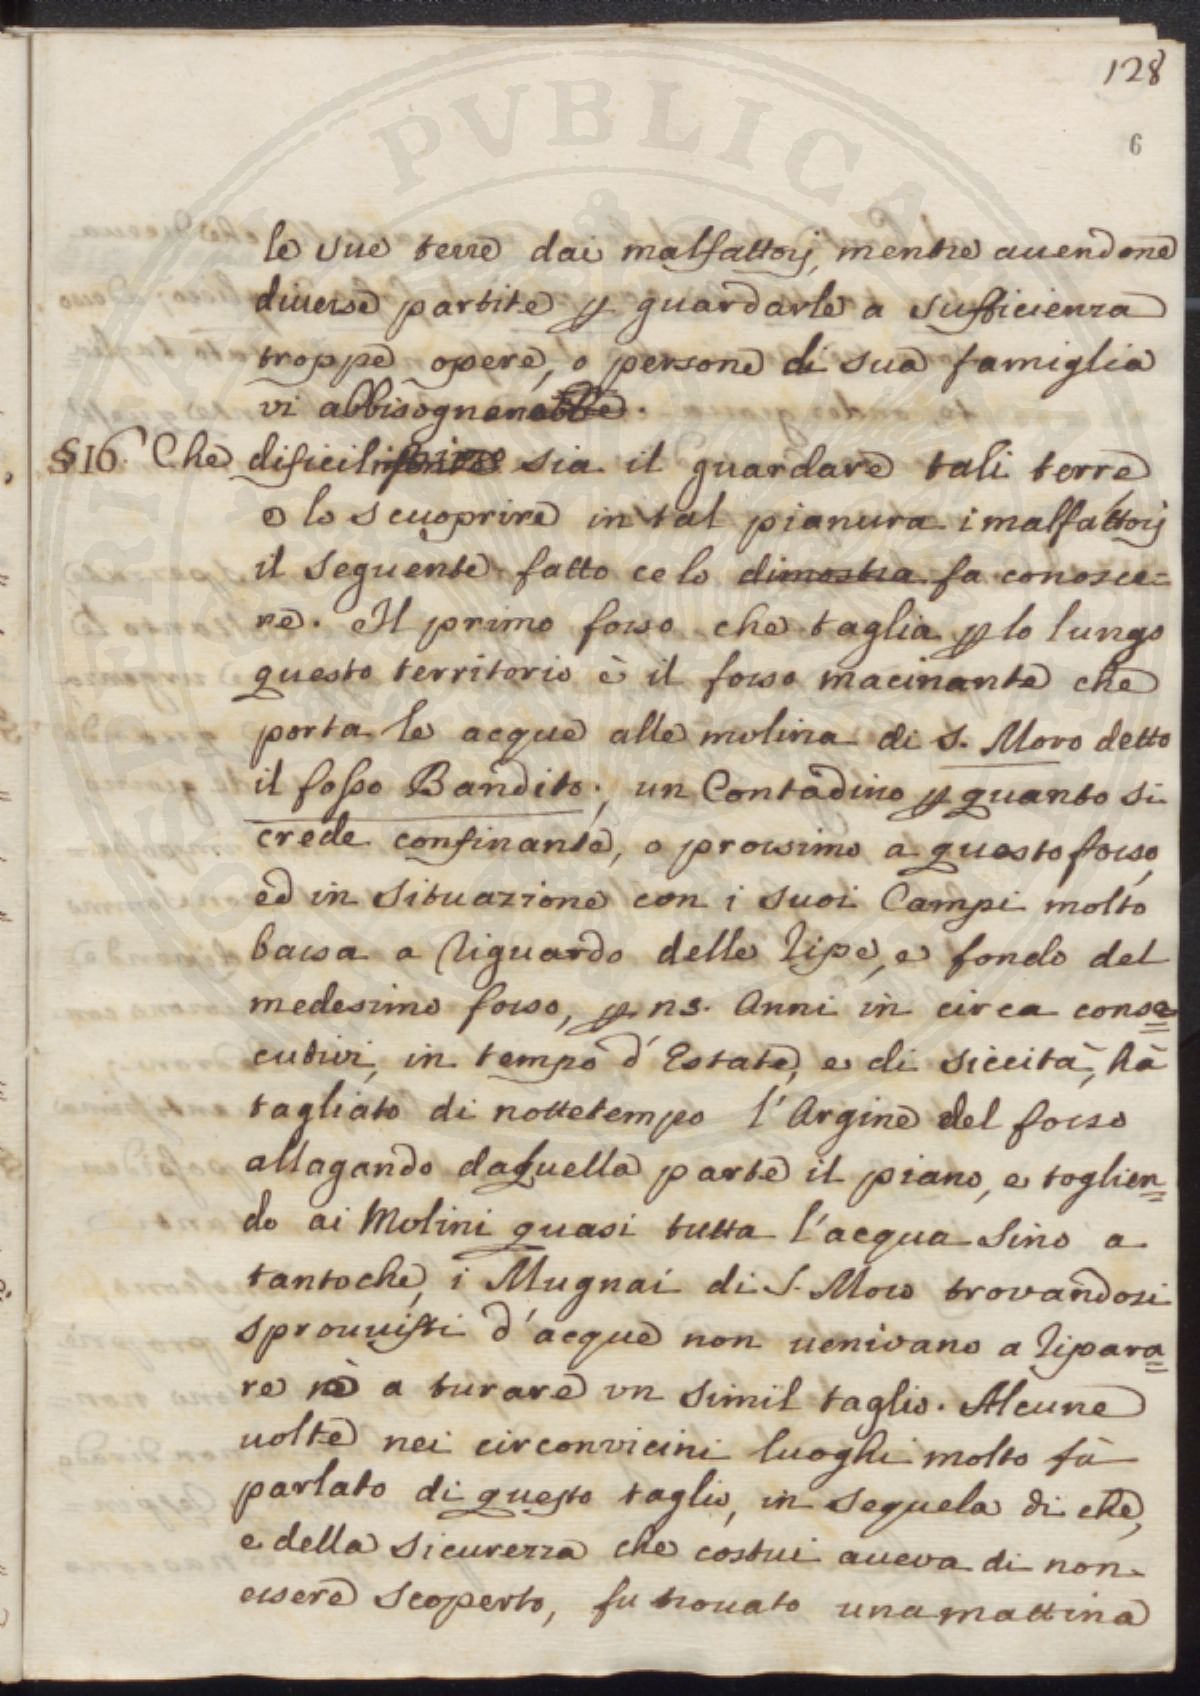 128
6
le sue terre dai malfattorj, mentre auendone
diuerse partite p guardarle a sufficienza
troppe opere, o persone di sua famiglia
vi abbisognerebbe.
§16. Che dificil sia il guardare tali terre
o lo scuoprire in tal pianura i malfattorj
il seguente fatto ce lo dimostra fa conosce=
re. Il primo fosso che taglia p lo lungo
questo territorio è il fosso macinante che
porta le acque alle molina di S. Moro detto
il fosso Bandito; un Contadino p quanto si
crede confinante, o prossimo a questo fosso,
ed in situazione con i suoi Campi molto
bassa a riguardo delle ripe, e fondo del
medesimo fosso, p n3. Anni in circa conse=
cutivi, in tempo d'Estate, e di siccità, hà
tagliato di nottetempo l'Argine del fosso
allagando da quella parte il piano, e toglien=
do ai Molini quasi tutta l'acqua sino a
tantoche, i Mugnai di S. Moro trovandosi
sprouuisti d'acque non uenivano a ripara=
re e a turare un simil taglio. Alcune
uolte nei circonvicini luoghi molto fù
parlato di questo taglio, in sequela di che,
e della sicurezza che costui aueva di non
essere scoperto, fu trouato una mattina
PUBLICA